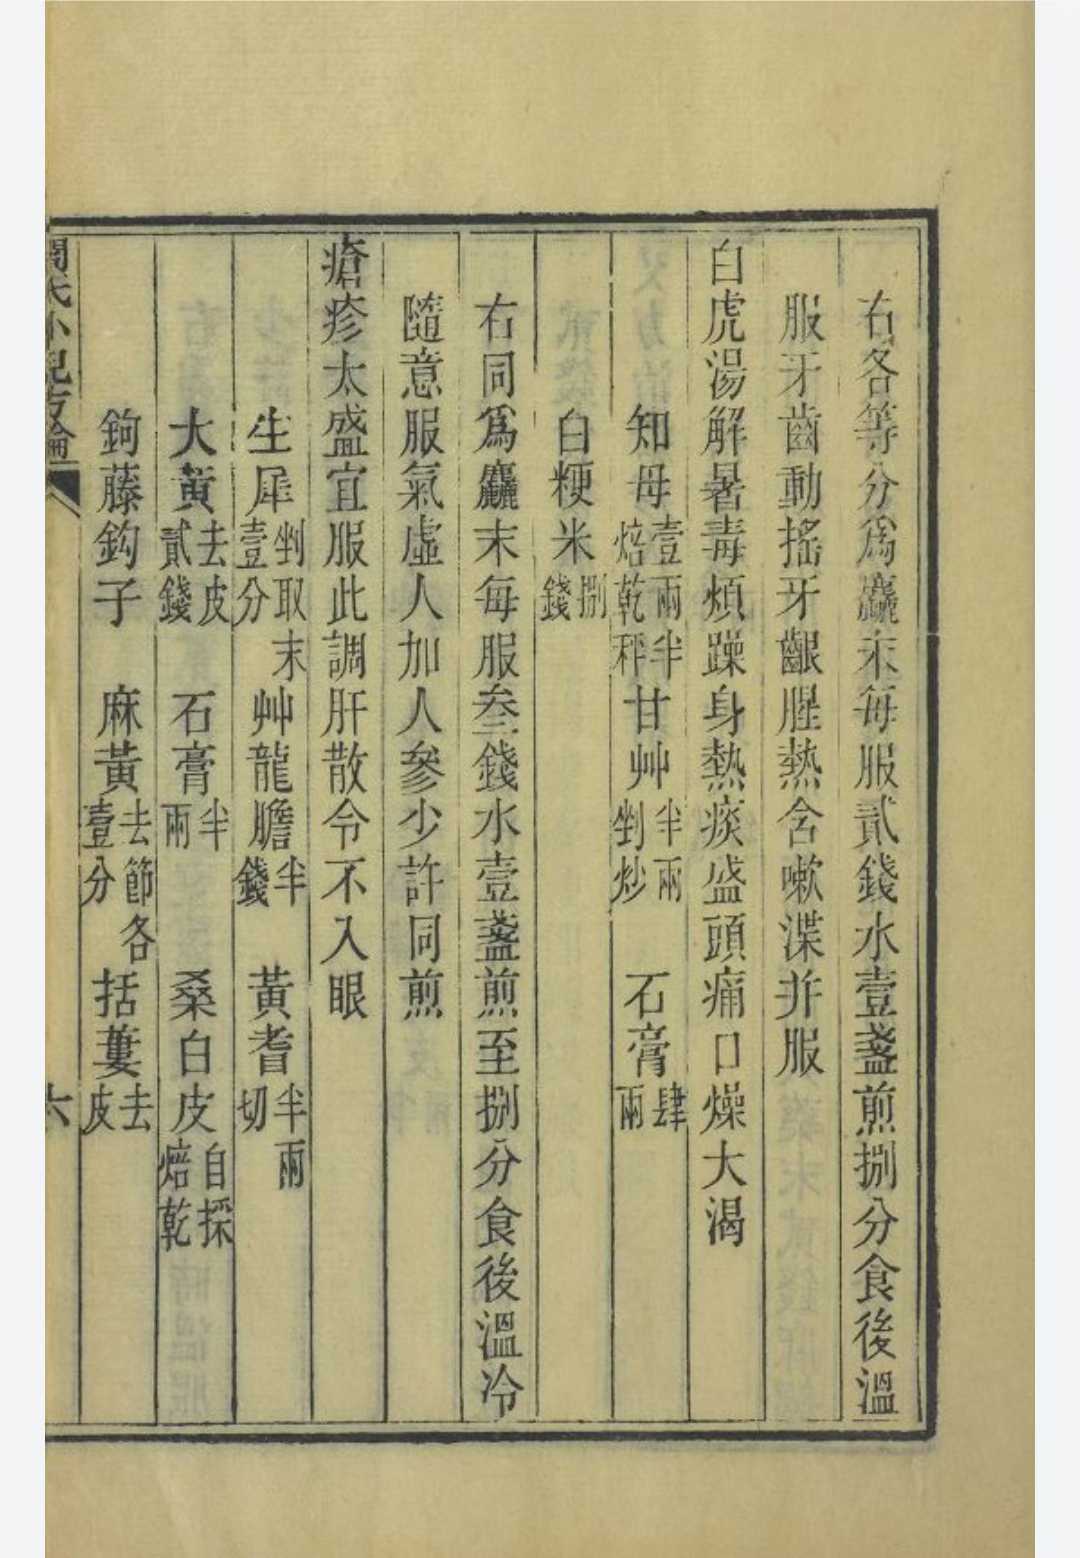 右各等分爲麤末每服貳錢水壹盞煎捌分食後溫
服牙齒動搖牙齦腥熱含嗽渫并服
白虎湯解暑毒煩躁身熱痰盛頭痛口燥大渴
知母壹兩半焙乾秤 甘艸半兩剉炒 石膏肆兩
白粳米捌錢
右同爲麤末每服叁錢水壹盞煎至捌分食後溫冷
隨意服氣虛人加人參少許同煎
瘡疹太盛宜服此調肝散令不入眼
生犀剉取末壹分 艸龍膽半錢 黃耆半兩切
大黃去皮貳錢 石膏半兩 桑白皮自採焙乾
鉤藤鈎子 麻黃去節各壹分 括蔞去皮
閻氏小兒方論 六